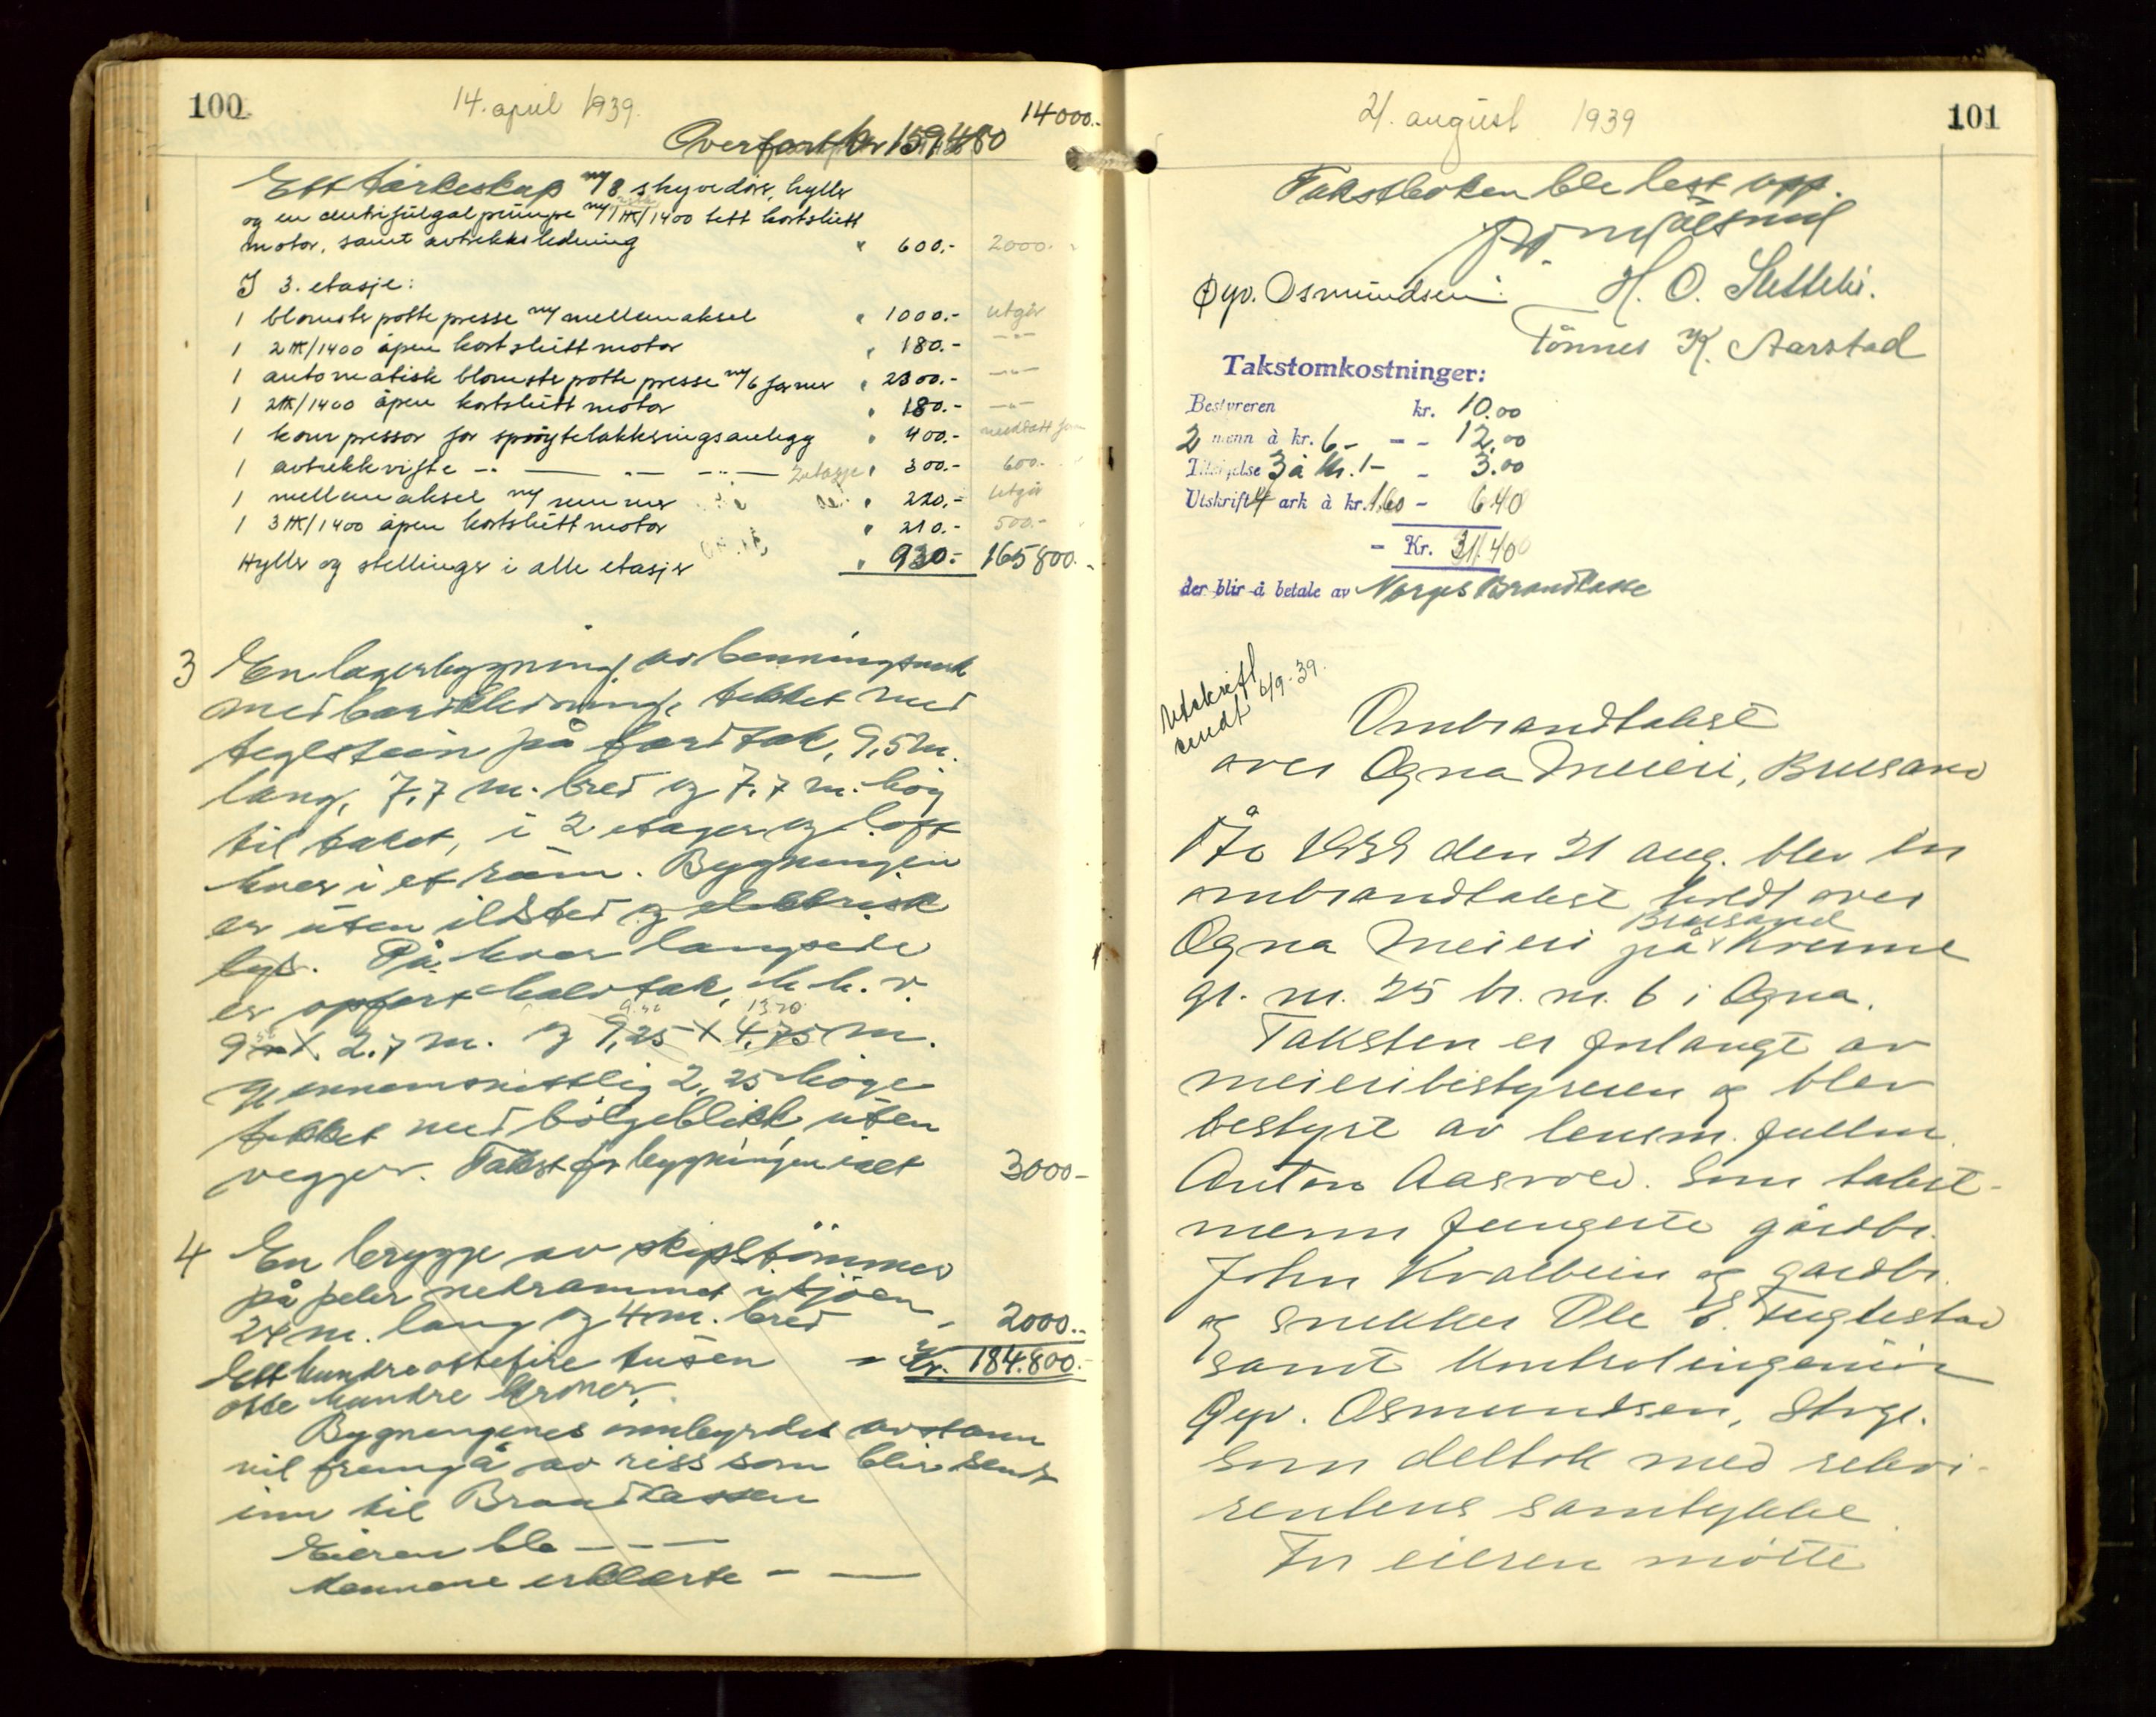 100
14. april 1939.
14000.-
Overført kr 159480
Ett tørkeskap m/ 8 skyvedör, hyller
og en centrifugalpumpe m/ 1 HK/1400 tett kortslutt
motor, samt avtrekksledning " 600.- 2000.-
I 3. etasje:
1 blomsterpottepresse m/ mellemaksel " 1000.- utgår
1 2 HK/1400 åpen kortslutt motor " 180.- -"-
1 automatisk blomsterpottepresse m/6 former " 2300.- -"-
1 2 HK/1400 åpen kortslutt motor " 180.- -"-
1 kompressor for sprøytelakkeringsanlegg " 400.-
1 avtrekkvifte -"- -"- -"- 2 etasje " 300.- 600.-
1 mellemaksel m/ remmer " 220.- utgår
1 3 HK/1400 åpen kortslutt motor " 210.- 500.-
Hyller og stellinger i alle etasjer " 930.- 165800.-
3 En lagerbygning av benningsverk
med bordkledning, tekket med
teglstein på bordtak, 9,5 m.
lang, 7,7 m. bred og 7,7 m. høg
til taket, i 2 etager og loft
hver i et rum. Bygningen
er uten ildsted og elektrisk
lys. På hver langside
er opført halvtak, h.h.v.
9 x 2,7 m. og 9,25 x 4,75 m.
gjennomsnittlig 2,25 høge
tekket med bølgeblikk uten
vegger. Takst for bygningen ialt 3000-
4 En brygge av skipstömmer
på peler nedrammet i sjøen,
24 m. lang og 4 m. bred - 2000.-
Ett hundreottefire tusen = Kr. 184.800.-
otte hundre kroner.
Bygningenes innbyrdes avstann
vil fremgå av riss som blir sendt
inn til Brandkassen
Eieren ble - - -
Mennene erklærte - -
101
21. august 1939
Takstboken ble lest opp.
Øyv. Osmundsen. H. O.
Tönnes K. Aarstad
Takstomkostninger:
Bestyreren kr. 10.00
2 menn à kr. 6- - - 12.00
Tilsigelse 3 à kr. 1- - 3.00
Utskrift 4 ark à kr. 1.60 - 6 40
- Kr. 31.40
der blir å betale av Norges Brandkasse
Utskrift
sendt 6/9-39.
Ombrandtakst
over Ogna Meieri, Brusand
År 1939 den 21 aug. blev en
ombrandtakst holdt over
Brusand
Ogna Meieri på Kvime
gr. nr. 25 br. nr. 6 i Ogna.
Taksten er forlangt av
meieribestyreren og blev
bestyrt av lensm. fullm.
Anton Aasvold. Som takst-
menn fungerte gårdbr.
John Kvalbein og gardbr.
og snekker Ole E. Fuglestad
samt kontrolingeniör
Øyv. Osmundsen, Stvgr.
som deltok med rekvi-
rentens samtykke.
For eieren møtte